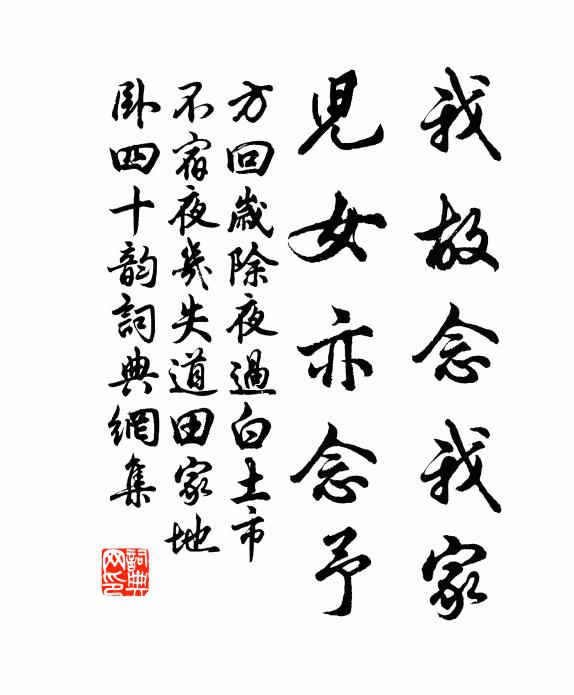 我故念我家
兒女亦念予
方回歲除夜過白土市
不宿夜幾失道田家地
臥四十韵詞典網集
詞典網印